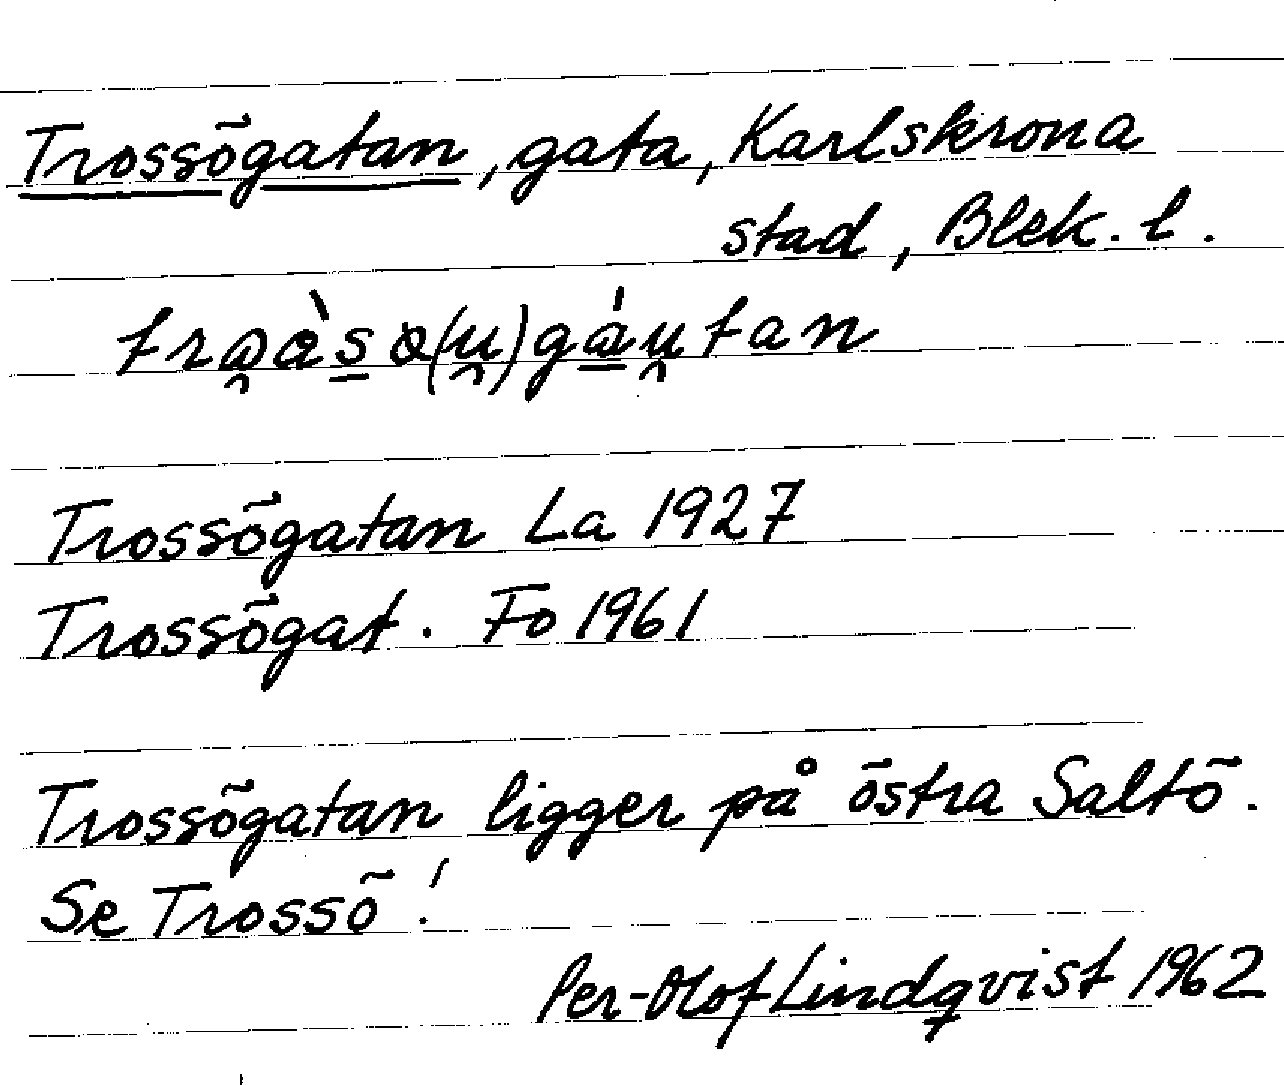 Trossögatan, gata, Karlskrona
stad, Blek. l.
Trossögatan La 1927
Trossögat. Fo 1961
Trossögatan ligger på östra Saltö.
Se Trossö!
Per-Olof Lindqvist 1962